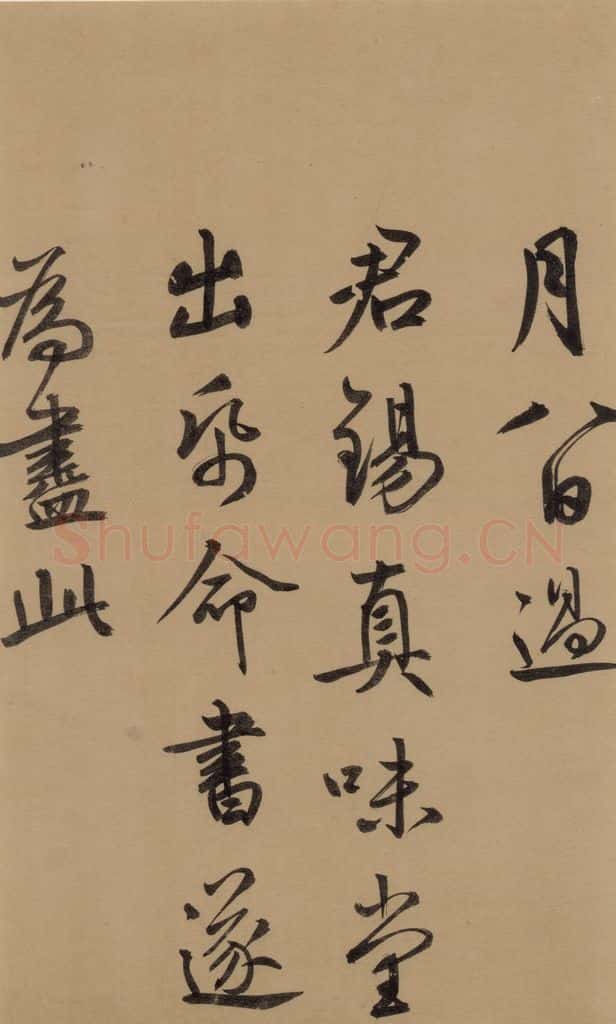 月八日過
君錫真味堂
出紙命書遂
為盡此
Shufawang.CN